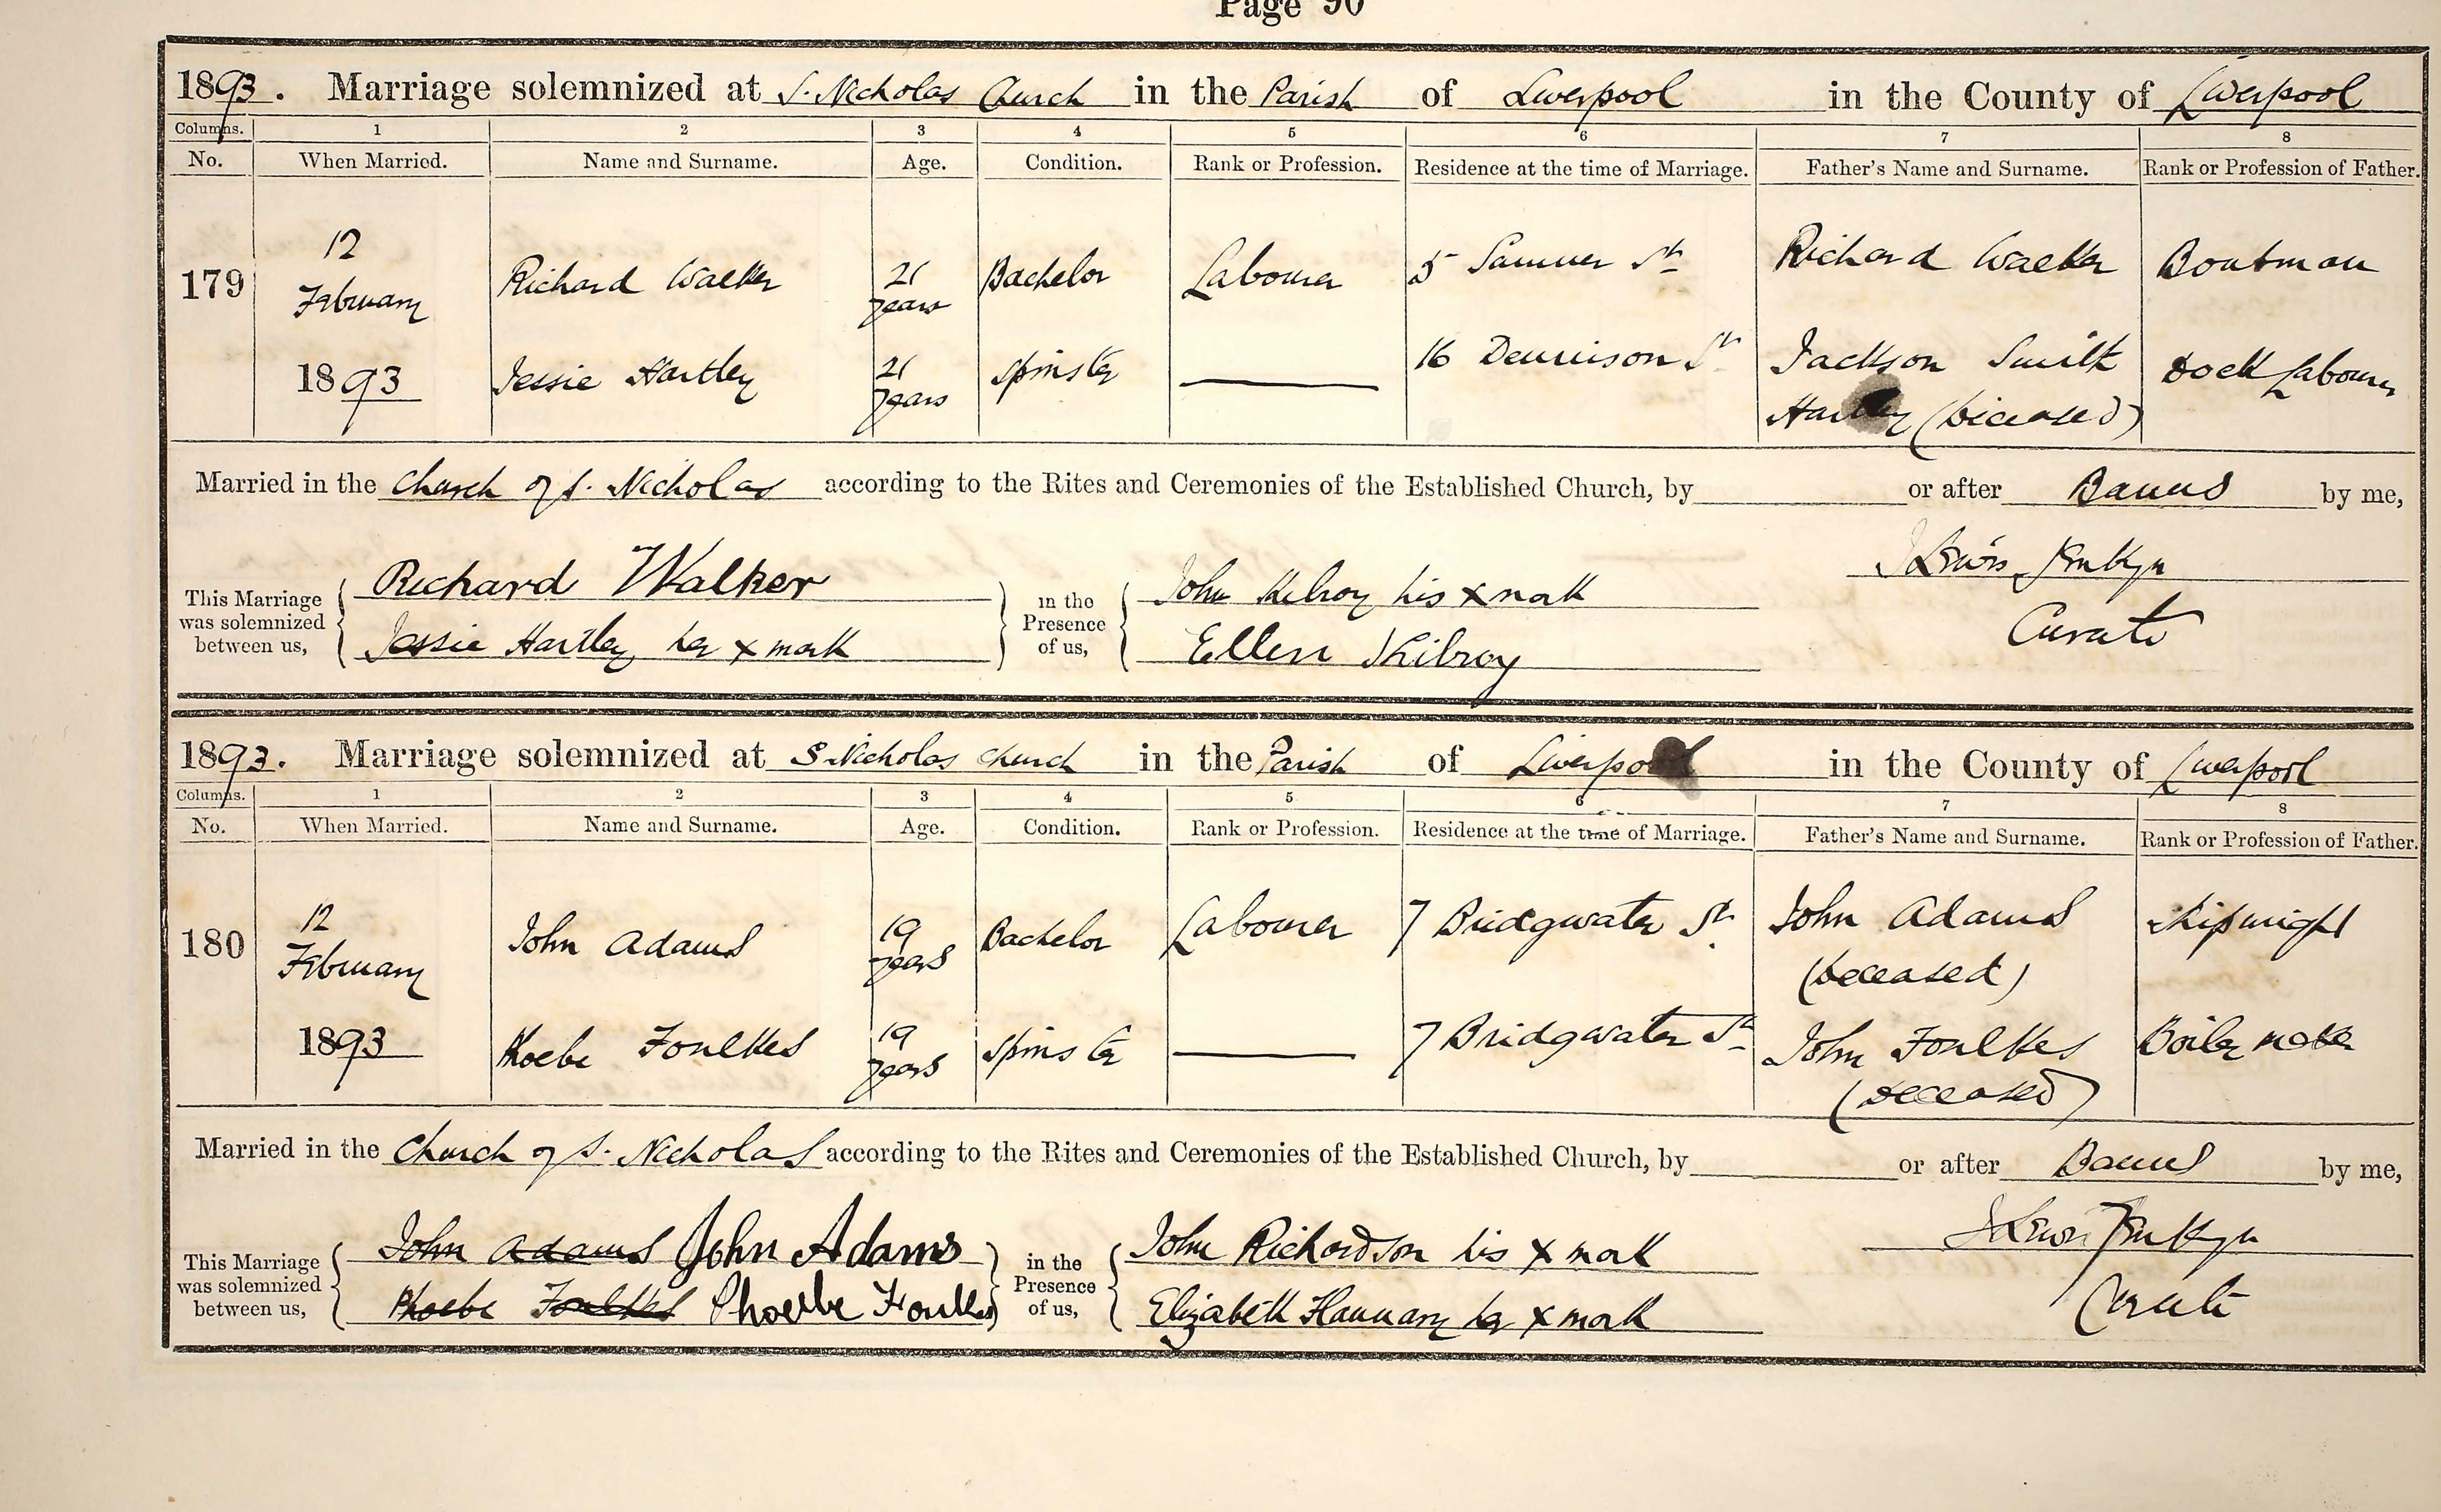 Page 90
1893. Marriage solemnized at S. Nicholas Church in the Parish of Liverpool in the County of Liverpool
Columns. 1 2 3 4 5 6 7 8
No. When Married. Name and Surname. Age. Condition. Rank or Profession. Residence at the time of Marriage. Father's Name and Surname. Rank or Profession of Father.
179 12 February Richard Walker 21 years Bachelor Labourer 5 St Richard Walker Boatman
1893 Jessie Hartley 21 years Spinster 16 Dennison St Jackson Smith Hartley (Deceased) Dock Labourer
Married in the Church of S. Nicholas according to the Rites and Ceremonies of the Established Church, by or after Banns by me,
This Marriage was solemnized between us, Richard Walker in the Presence of us, John Kilroy his x mark J Lewis Jenkyn
Jessie Hartley her x mark Ellen Kilroy Curate
1893. Marriage solemnized at S Nicholas Church in the Parish of Liverpool in the County of Liverpool
Columns. 1 2 3 4 5 6 7 8
No. When Married. Name and Surname. Age. Condition. Rank or Profession. Residence at the time of Marriage. Father's Name and Surname. Rank or Profession of Father.
180 12 February John Adams 19 years Bachelor Labourer 7 Bridgwater St John Adams (Deceased) Shipwright
1893 Phoebe Foulkes 19 years Spinster 7 Bridgwater St John Foulkes (Deceased) Boiler maker
Married in the Church of S. Nicholas according to the Rites and Ceremonies of the Established Church, by or after Banns by me,
This Marriage was solemnized between us, John Adams John Adams in the Presence of us, John Richardson his x mark J Lewis Jenkyn
Phoebe Foulkes Phoebe Foulkes Elizabeth Hannary her x mark Curate